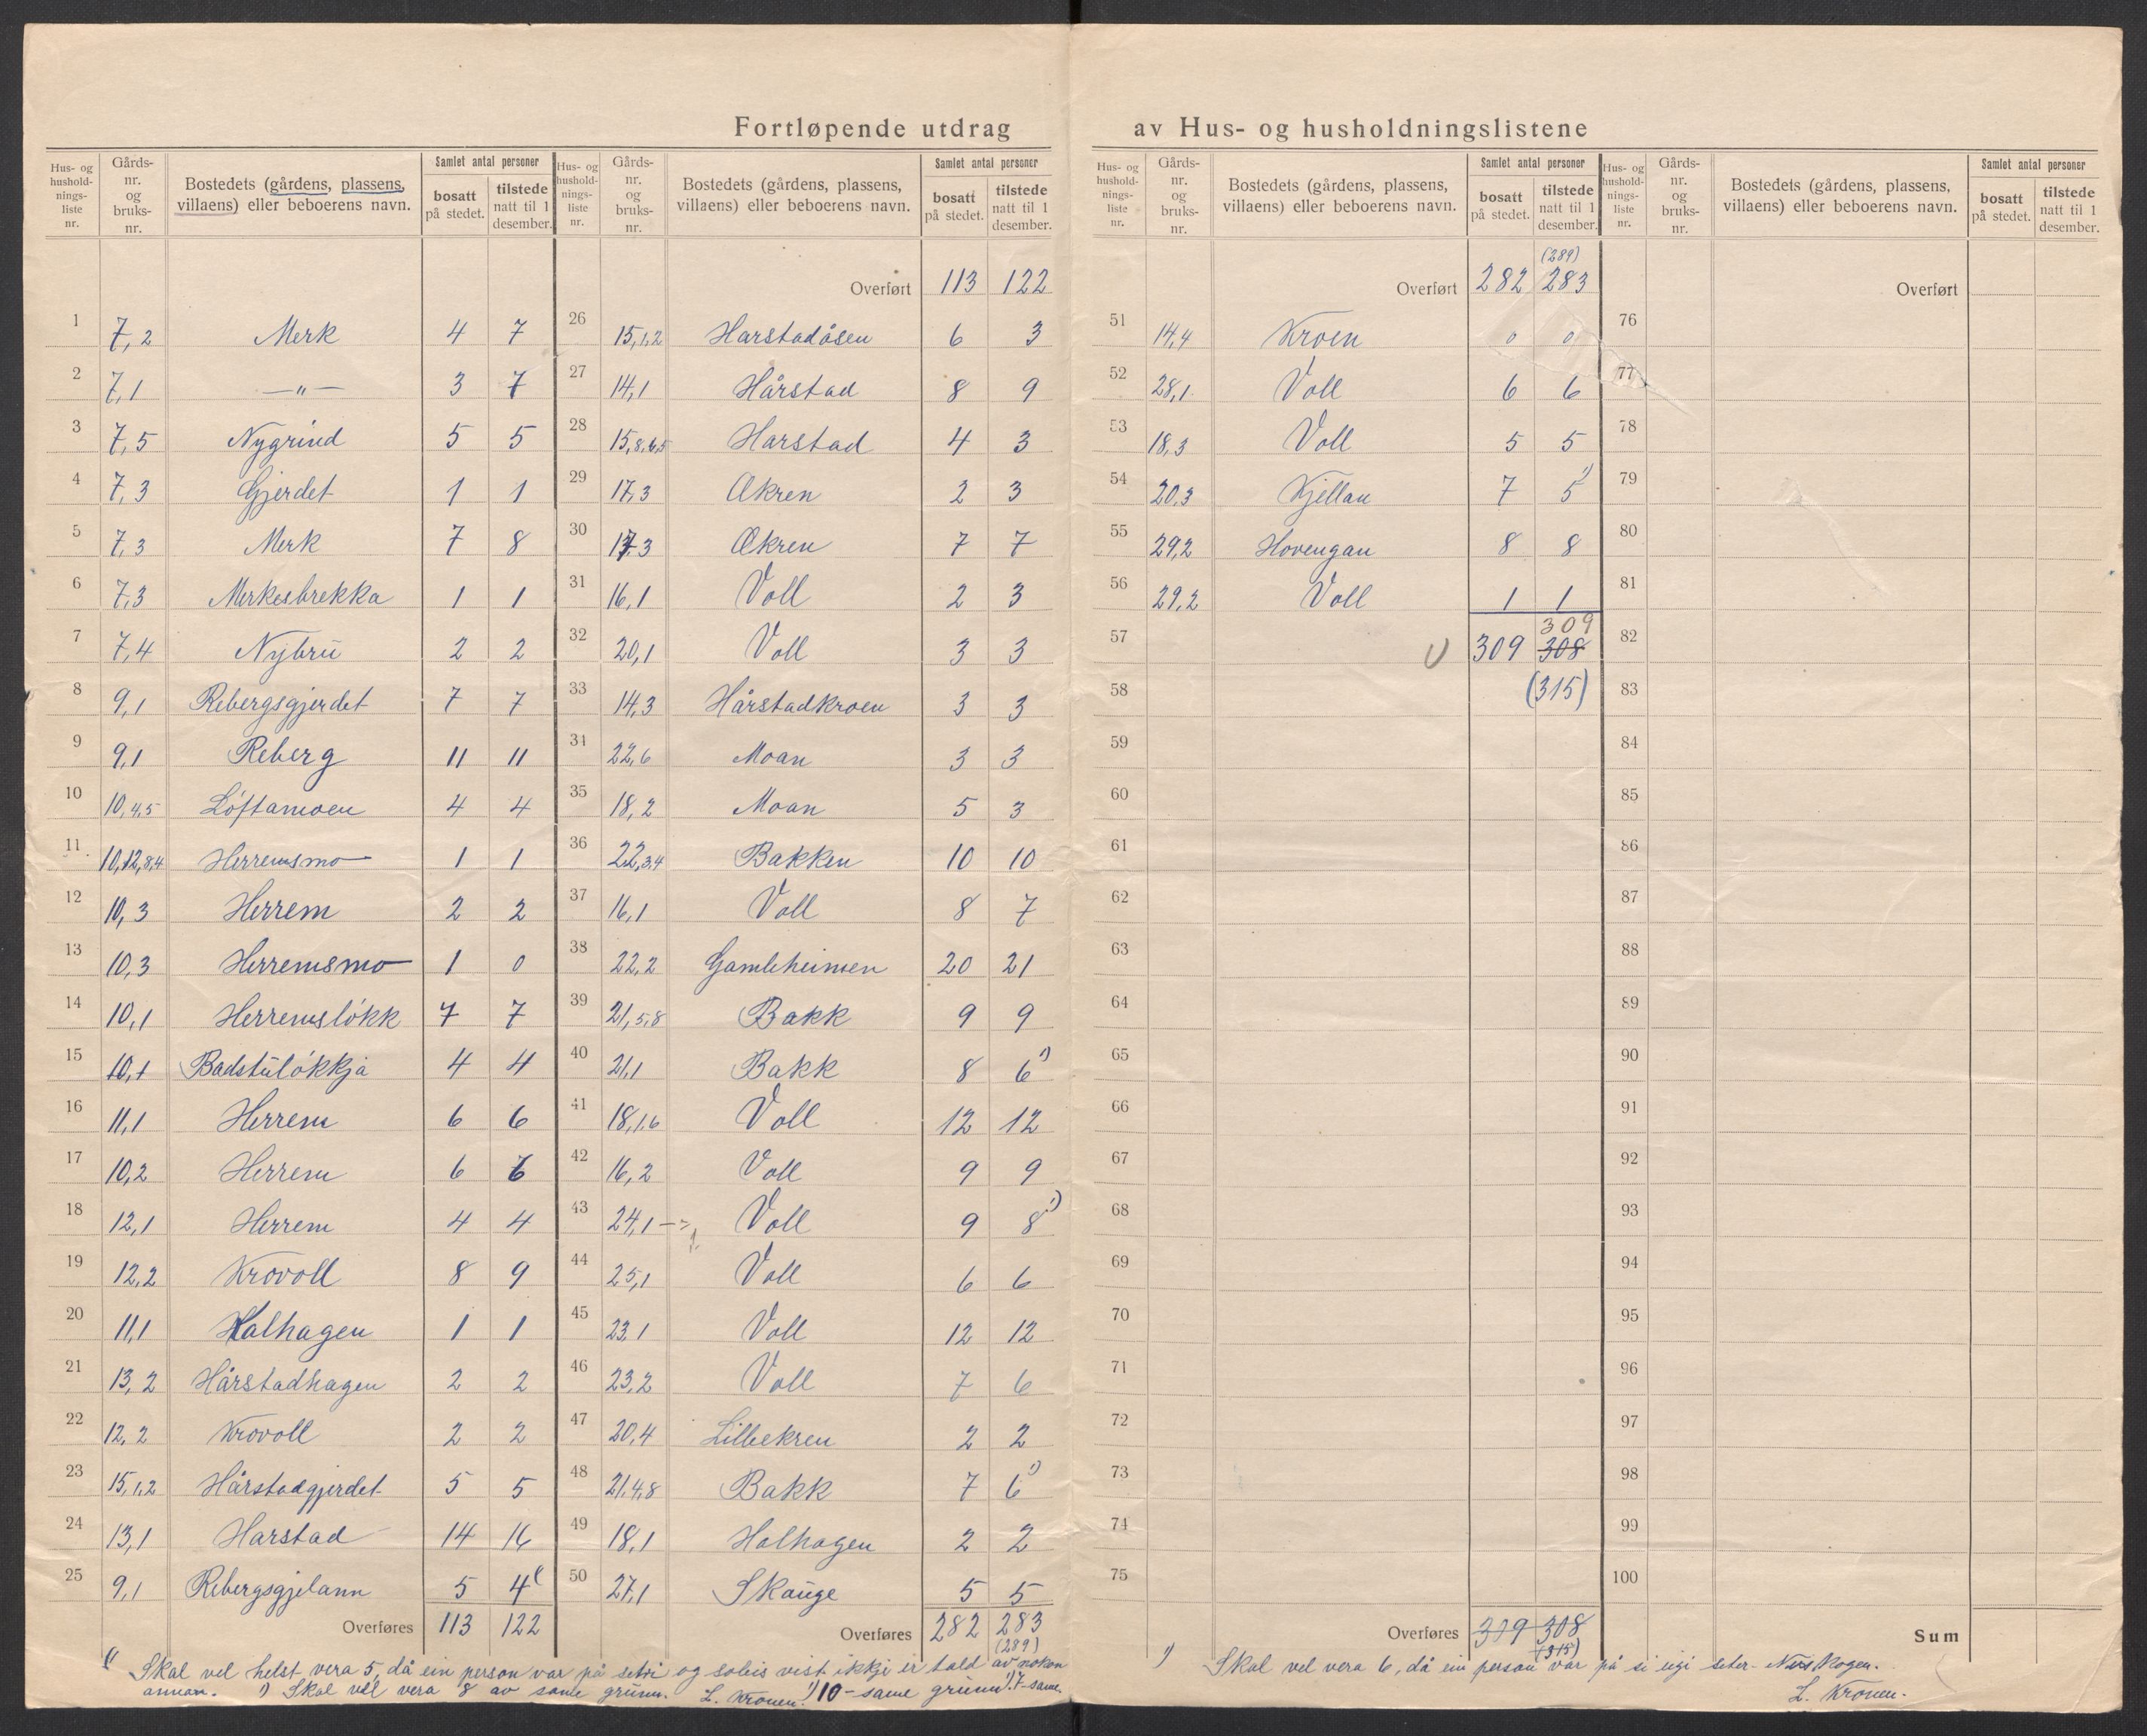 Fortløpende utdrag av Hus- og husholdningslistene
Hus- og husholdnings-liste nr. | Gårds-nr. og bruks-nr. | Bostedets (gårdens, plassens, villaens) eller beboerens navn. | Samlet antal personer bosatt på stedet. | tilstede natt til 1 desember.
1 | 7,2 | Merk | 4 | 7
2 | 7,1 | —"— | 3 | 7
3 | 7,5 | Nygrind | 5 | 5
4 | 7,3 | Gjerdet | 1 | 1
5 | 7,3 | Merk | 7 | 8
6 | 7,3 | Merkesbrekka | 1 | 1
7 | 7,4 | Nybru | 2 | 2
8 | 9,1 | Rebergsgjerdet | 7 | 7
9 | 9,1 | Reberg | 11 | 11
10 | 10,4,5 | Løftamoen | 4 | 4
11 | 10,12,8,4 | Herremsmo | 1 | 1
12 | 10,3 | Herrem | 2 | 2
13 | 10,3 | Herremsmo | 1 | 0
14 | 10,1 | Herremsløkk | 7 | 7
15 | 10,1 | Badstuløkkja | 4 | 4
16 | 11,1 | Herrem | 6 | 6
17 | 10,2 | Herrem | 6 | 6
18 | 12,1 | Herrem | 4 | 4
19 | 12,2 | Krovoll | 8 | 9
20 | 11,1 | Halhagen | 1 | 1
21 | 13,2 | Hårstadhagen | 2 | 2
22 | 12,2 | Krovoll | 2 | 2
23 | 15,1,2 | Hårstadgjerdet | 5 | 5
24 | 13,1 | Harstad | 14 | 16
25 | 9,1 | Rebergsgjelann | 5 | 4
Overføres | 113 | 122
Hus- og husholdnings-liste nr. | Gårds-nr. og bruks-nr. | Bostedets (gårdens, plassens, villaens) eller beboerens navn. | Samlet antal personer bosatt på stedet. | tilstede natt til 1 desember.
Overført | 113 | 122
26 | 15,1,2 | Harstadåsen | 6 | 3
27 | 14,1 | Hårstad | 8 | 9
28 | 15,8,6,5 | Harstad | 4 | 3
29 | 17,3 | Ækren | 2 | 3
30 | 17,3 | Ækren | 7 | 7
31 | 16,1 | Voll | 2 | 3
32 | 20,1 | Voll | 3 | 3
33 | 14,3 | Hårstadkroen | 3 | 3
34 | 22,6 | Moan | 3 | 3
35 | 18,2 | Moan | 5 | 3
36 | 22,3,4 | Bakken | 10 | 10
37 | 16,1 | Voll | 8 | 7
38 | 22,2 | Gamleheimen | 20 | 21
39 | 21,5,8 | Bakk | 9 | 9
40 | 21,1 | Bakk | 8 | 6 ¹)
41 | 18,1,6 | Voll | 12 | 12
42 | 16,2 | Voll | 9 | 9
43 | 24,1 | Voll | 9 | 8 ¹)
44 | 25,1 | Voll | 6 | 6
45 | 23,1 | Voll | 12 | 12
46 | 23,2 | Voll | 7 | 6
47 | 20,4 | Lilleekren | 2 | 2
48 | 21,4,8 | Bakk | 7 | 6 ¹)
49 | 18,1 | Halhagen | 2 | 2
50 | 27,1 | Skauge | 5 | 5
Overføres | 282 | 283
(289)
¹) Skal vel helst vera 5, då ein person var på setri og soleis vist ikkje er tald av nokon
annan. ¹) Skal vel vera 8 av same grunn. L. Kronen. ¹) 10 - same grunn. ¹) 7 - same.
Hus- og husholdnings-liste nr. | Gårds-nr. og bruks-nr. | Bostedets (gårdens, plassens, villaens) eller beboerens navn. | Samlet antal personer bosatt på stedet. | tilstede natt til 1 desember.
(289)
Overført | 282 | 283
51 | 14,4 | Kroen | 0 | 0
52 | 28,1 | Voll | 6 | 6
53 | 18,3 | Voll | 5 | 5
54 | 20,3 | Kjellan | 7 | 5 ¹)
55 | 29,2 | Hovengan | 8 | 8
56 | 29,2 | Voll | 1 | 1
309
57 | 309 | 308
58 | (315)
59
60
61
62
63
64
65
66
67
68
69
70
71
72
73
74
75
Overføres | 309 | 308
(315)
Hus- og husholdnings-liste nr. | Gårds-nr. og bruks-nr. | Bostedets (gårdens, plassens, villaens) eller beboerens navn. | Samlet antal personer bosatt på stedet. | tilstede natt til 1 desember.
Overført
76
77
78
79
80
81
82
83
84
85
86
87
88
89
90
91
92
93
94
95
96
97
98
99
100
Sum
¹) Skal vel vera 6, då ein person var på si eigi seter
L. Kronen.